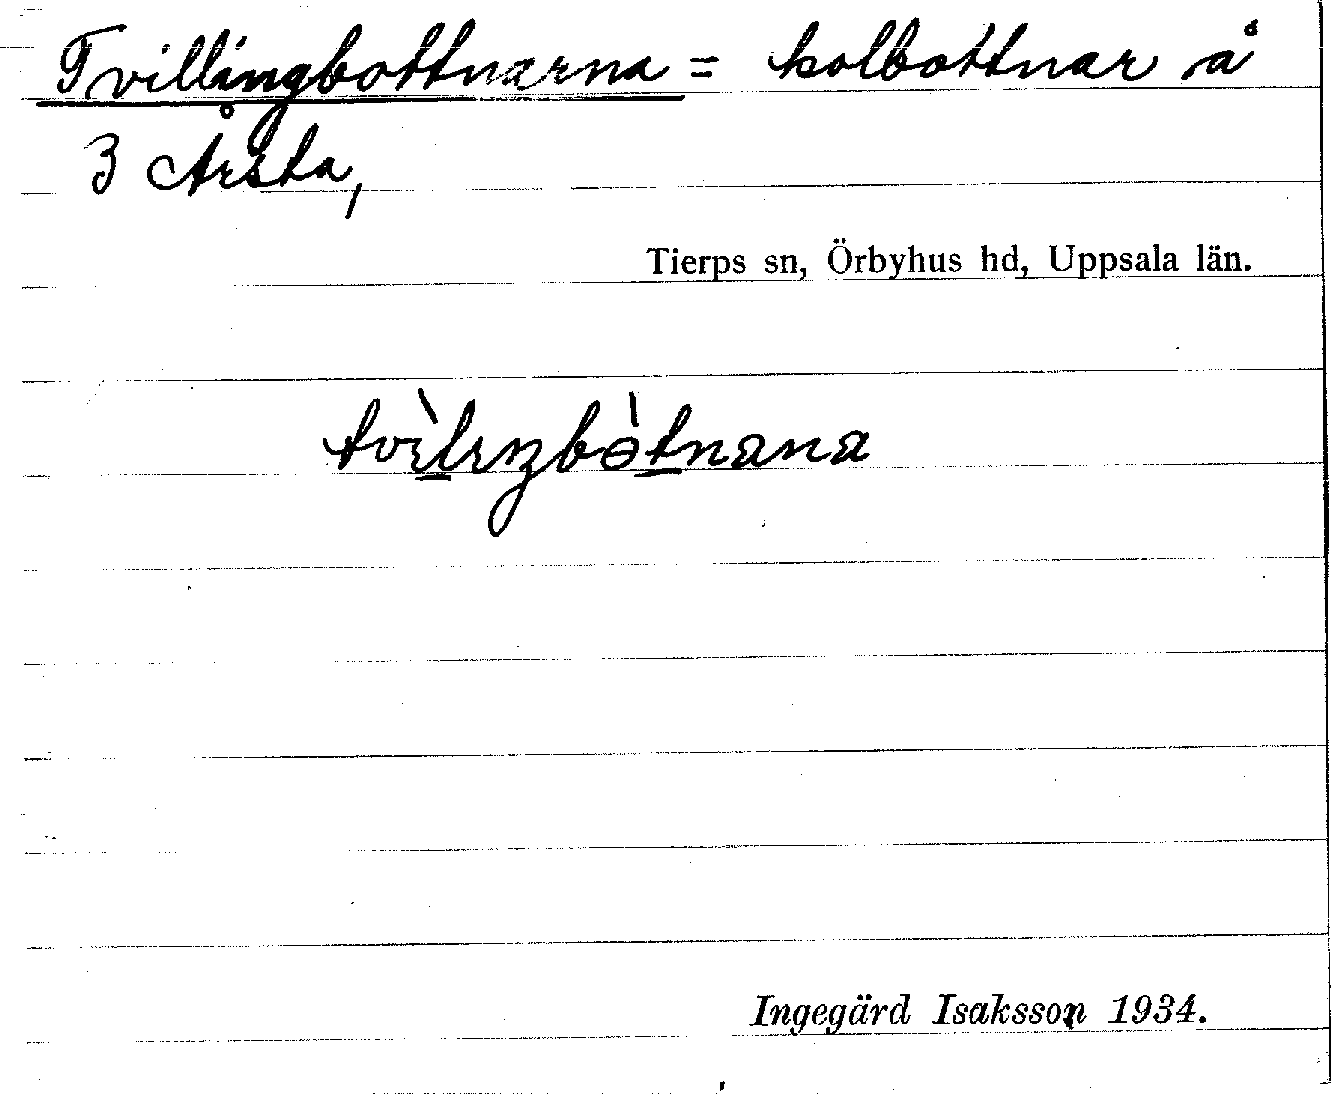 Tvillingbottnarna = kolbottnar å
3 Årsta,
Tierps sn, Örbyhus hd, Uppsala län.
tvìlɪŋbòtnana
Ingegärd Isaksson 1934.